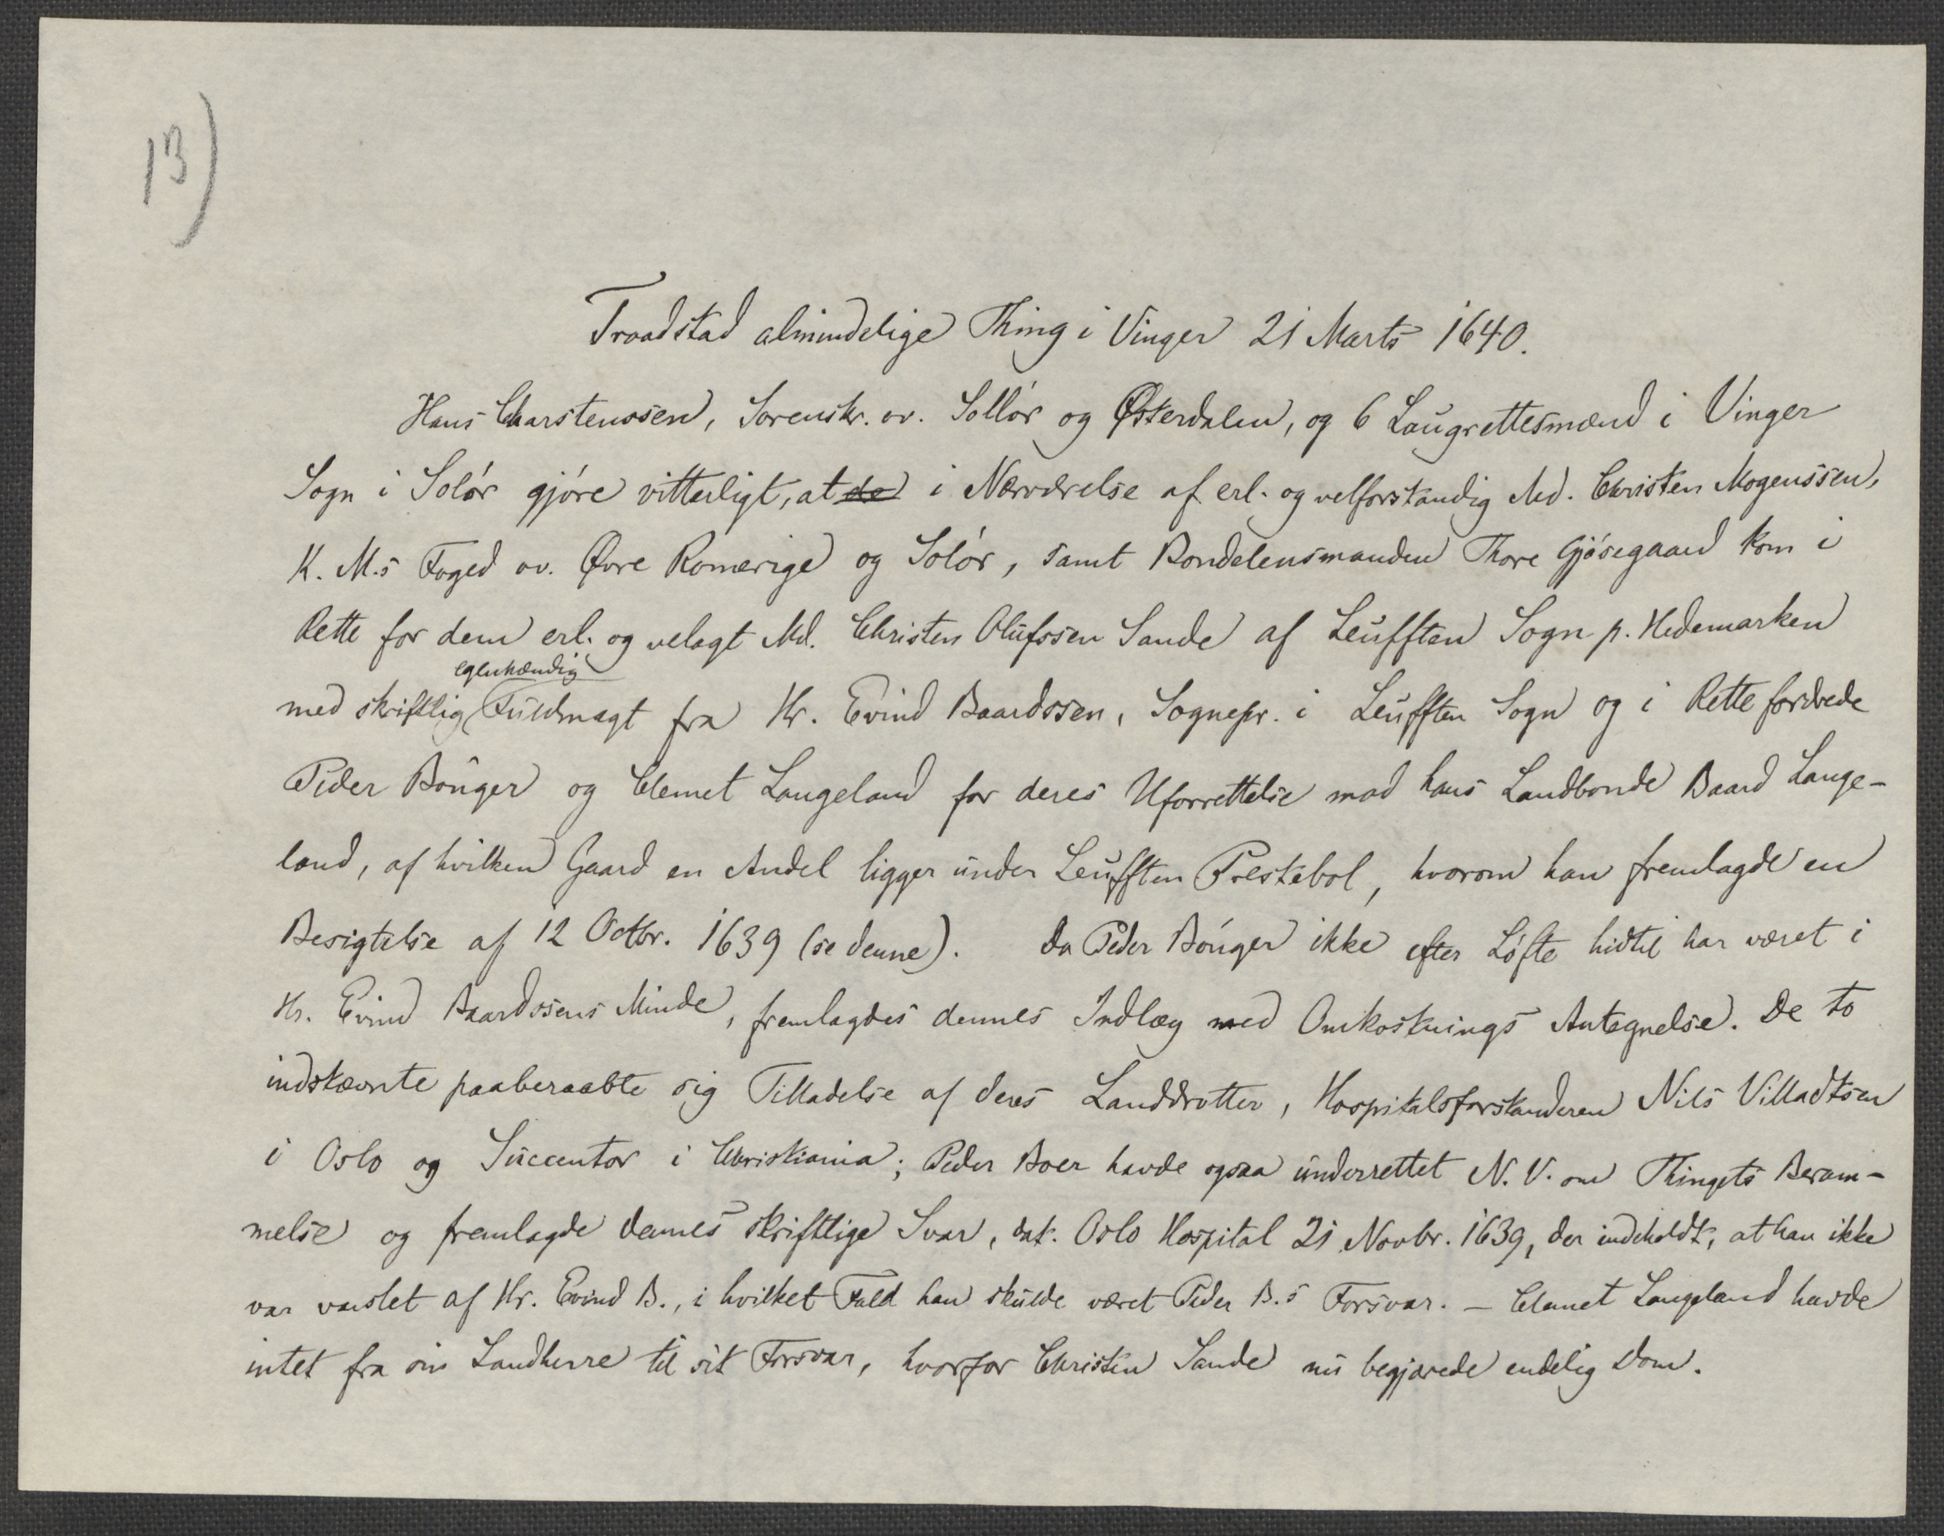 13)
Traadstad almindelige Thing i Vinger 21 Marts 1640.
Hans Charstenssen, Sorenskr. ov. Sollór og Østerdalen, og 6 Laugrettesmænd i Vinger
Sogn i Solór gjóre vitterligt, at de i Nærværelse af erl. og velforstandig Md. Christen Mogenssen,
K. M.s Foged ov. Øvre Romerige og Solór, samt Bondelensmanden Thore Gjósegaard kom i
Rette for dem erl. og velagt Md. Christen Olufssen Sande af Leufften Sogn p. Hedemarken
egenhændig
med skriftlig Fuldmagt fra Hr. Evind Baardssen, Sognepr. i Leufften Sogn og i Rette fordrede
Peder Bónger og Clemet Langeland for deres Uforrettelse mod hans Landbonde Baard Lange-
land, af hvilken Gaard en Andel ligger under Leufften Prestebol, hvorom han fremlagde en
Besigtelse af 12 Octbr. 1639 (se denne). Da Peder Bónger ikke efter Løfte hidtil har været i
Hr. Evind Baardssens Minde, fremlagdes dennes Indlæg med Omkostnings Antegnelse. De to
indstævnte paaberaabte sig Tilladelse af deres Landdrotter, Hospitalsforstanderen Nils Villadtsen
i Oslo og Succentor i Christiania; Peder Boer havde ogsaa underrettet N. V. om Thingets Beram-
melse og fremlagde dennes skriftlige Svar, dat. Oslo Hospital 21 Novbr. 1639, der indeholdt, at han ikke
var varslet af Hr. Evind B., i hvilket Fald han skulde været Peder B.s Forsvar. – Clemet Langeland havde
intet fra sin Landherre til sit Forsvar, hvorfor Christen Sande nu begjærede endelig Dom.